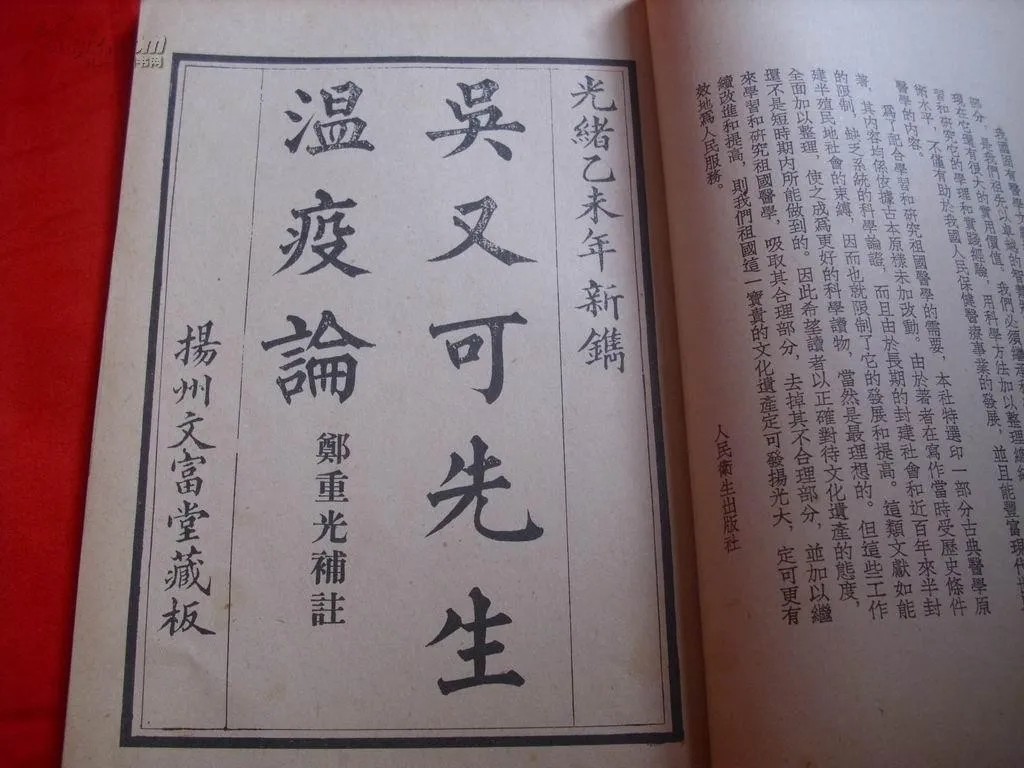 我國固有醫學
部分，是我們祖先以卓越的智慧
現在它還有很大的實用價值。我們必須繼承
習和研究它的學理和實踐經驗，用科學方法加以整理總結
術水平，不僅有助於我國人民保健醫療事業的發展，並且能豐富現代
醫學的內容。
爲了配合學習和研究祖國醫學的需要，本社特選印一部分古典醫學原
著，其內容均係依據古本原樣未加改動。由於著者在寫作當時受歷史條件
的限制，缺乏系統的科學論證，而且由於長期的封建社會和近百年來半封
建半殖民地社會的束縛，因而也就限制了它的發展和提高。這類文獻如能
全面加以整理，使之成爲更好的科學讀物，當然是最理想的。但這些工作
還不是短時期內所能做到的。因此希望讀者以正確對待文化遺產的態度，
來學習和研究祖國醫學，吸取其合理部分，去掉其不合理部分，並加以繼
續改進和提高，則我們祖國這一寶貴的文化遺產定可發揚光大，定可更有
效地爲人民服務。
人民衛生出版社
光緒乙未年新鐫
吳又可先生
温疫論
鄭重光補註
揚州文富堂藏板